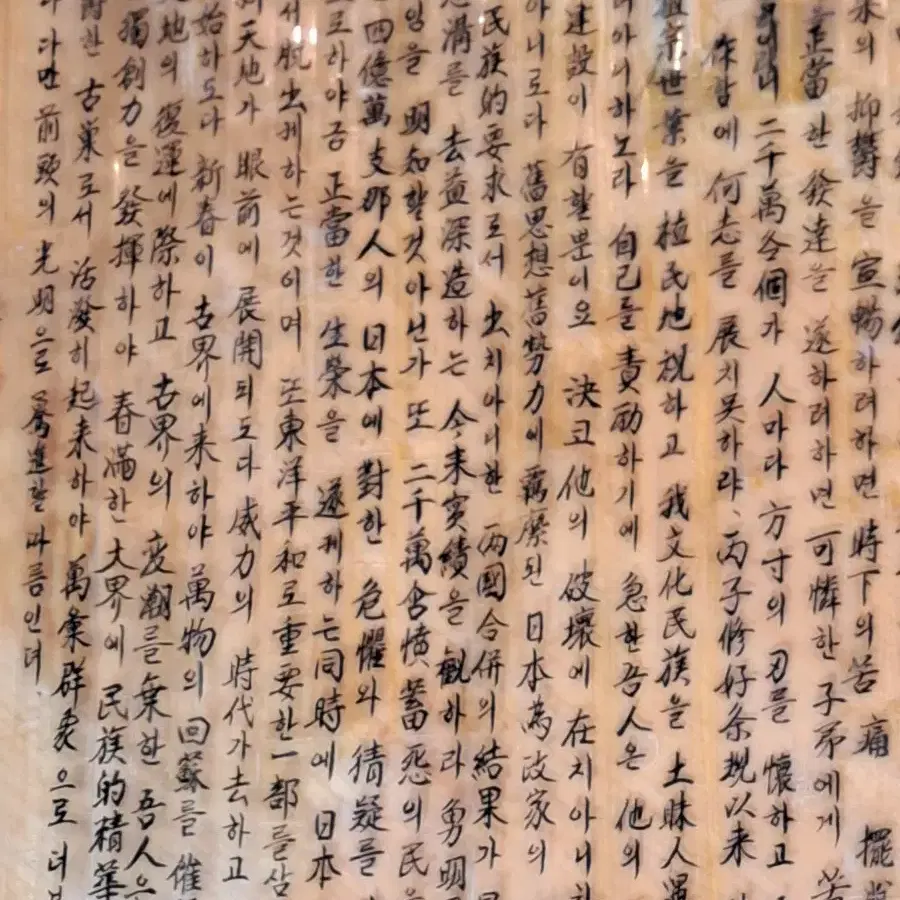 의 抑鬱을 宣暢하려하면 時下의 苦痛 擺脫
을 正當한 發達을 遂하려하면 可憐한 子弟에게 苦
二千萬各個가 人마다 方寸의 刃를 懷하고
作함에 何志를 展치못하랴、丙子修好条規以来
祖宗世業을 植民地視하고 我文化民族을 土昧人遇
려아니하노라 自己를 責励하기에 急한吾人은 他의
建設이 有할뿐이오 決코 他의 破壞에 在치아니한
아니로다 舊思想舊勢力에 羈縻된 日本為政家의
民族的要求로서 出치아니한 両國合併의 結果가
怨溝를 去益深造하는 今来実績을 観하라 勇明
임을 明知할것아닌가 또 二千萬含憤蓄怨의 民
四億萬支那人의 日本에 對한 危懼와 猜疑를
로하야금 正當한 生榮을 遂케하는同時에 日本
서脱出케하는것이며 또東洋平和로重要한一部를삼
天地가 眼前에 展開되도다 威力의 時代가去하고
始하도다 新春이 古界에来하야 萬物의 回蘇를 催
地의 復運에際하고 古界의 変潮를乗한 吾人은
獨創力을 發揮하야 春滿한大界에 民族的精華
한 古巣로서 活潑히起来하야 萬彙群象으로더부
다만 前頭의 光明으로 驀進할따름인뎌.